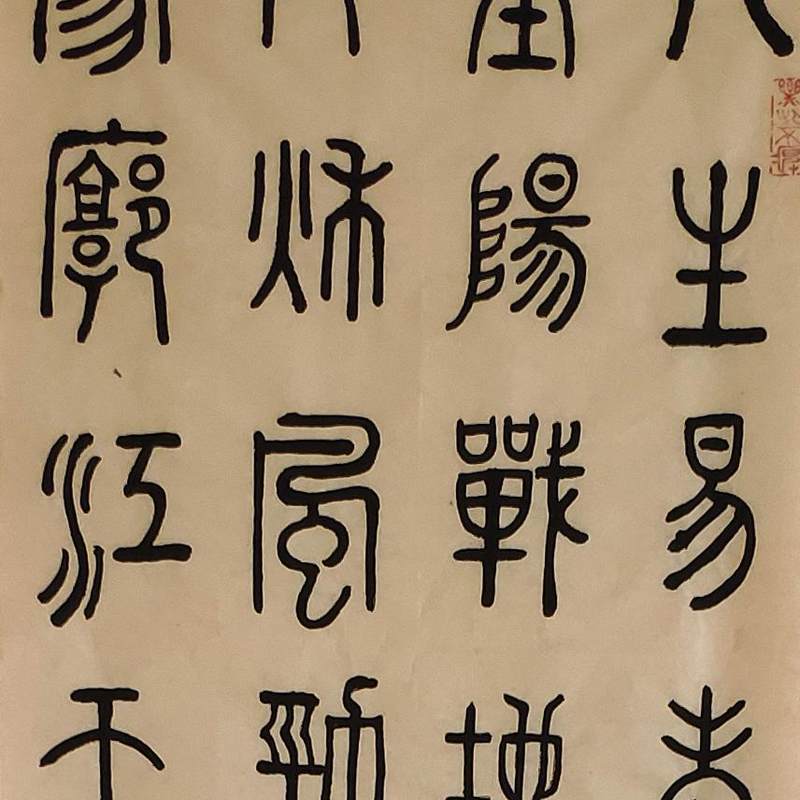 人生易老
陽戰地
秌風勁
廓江天